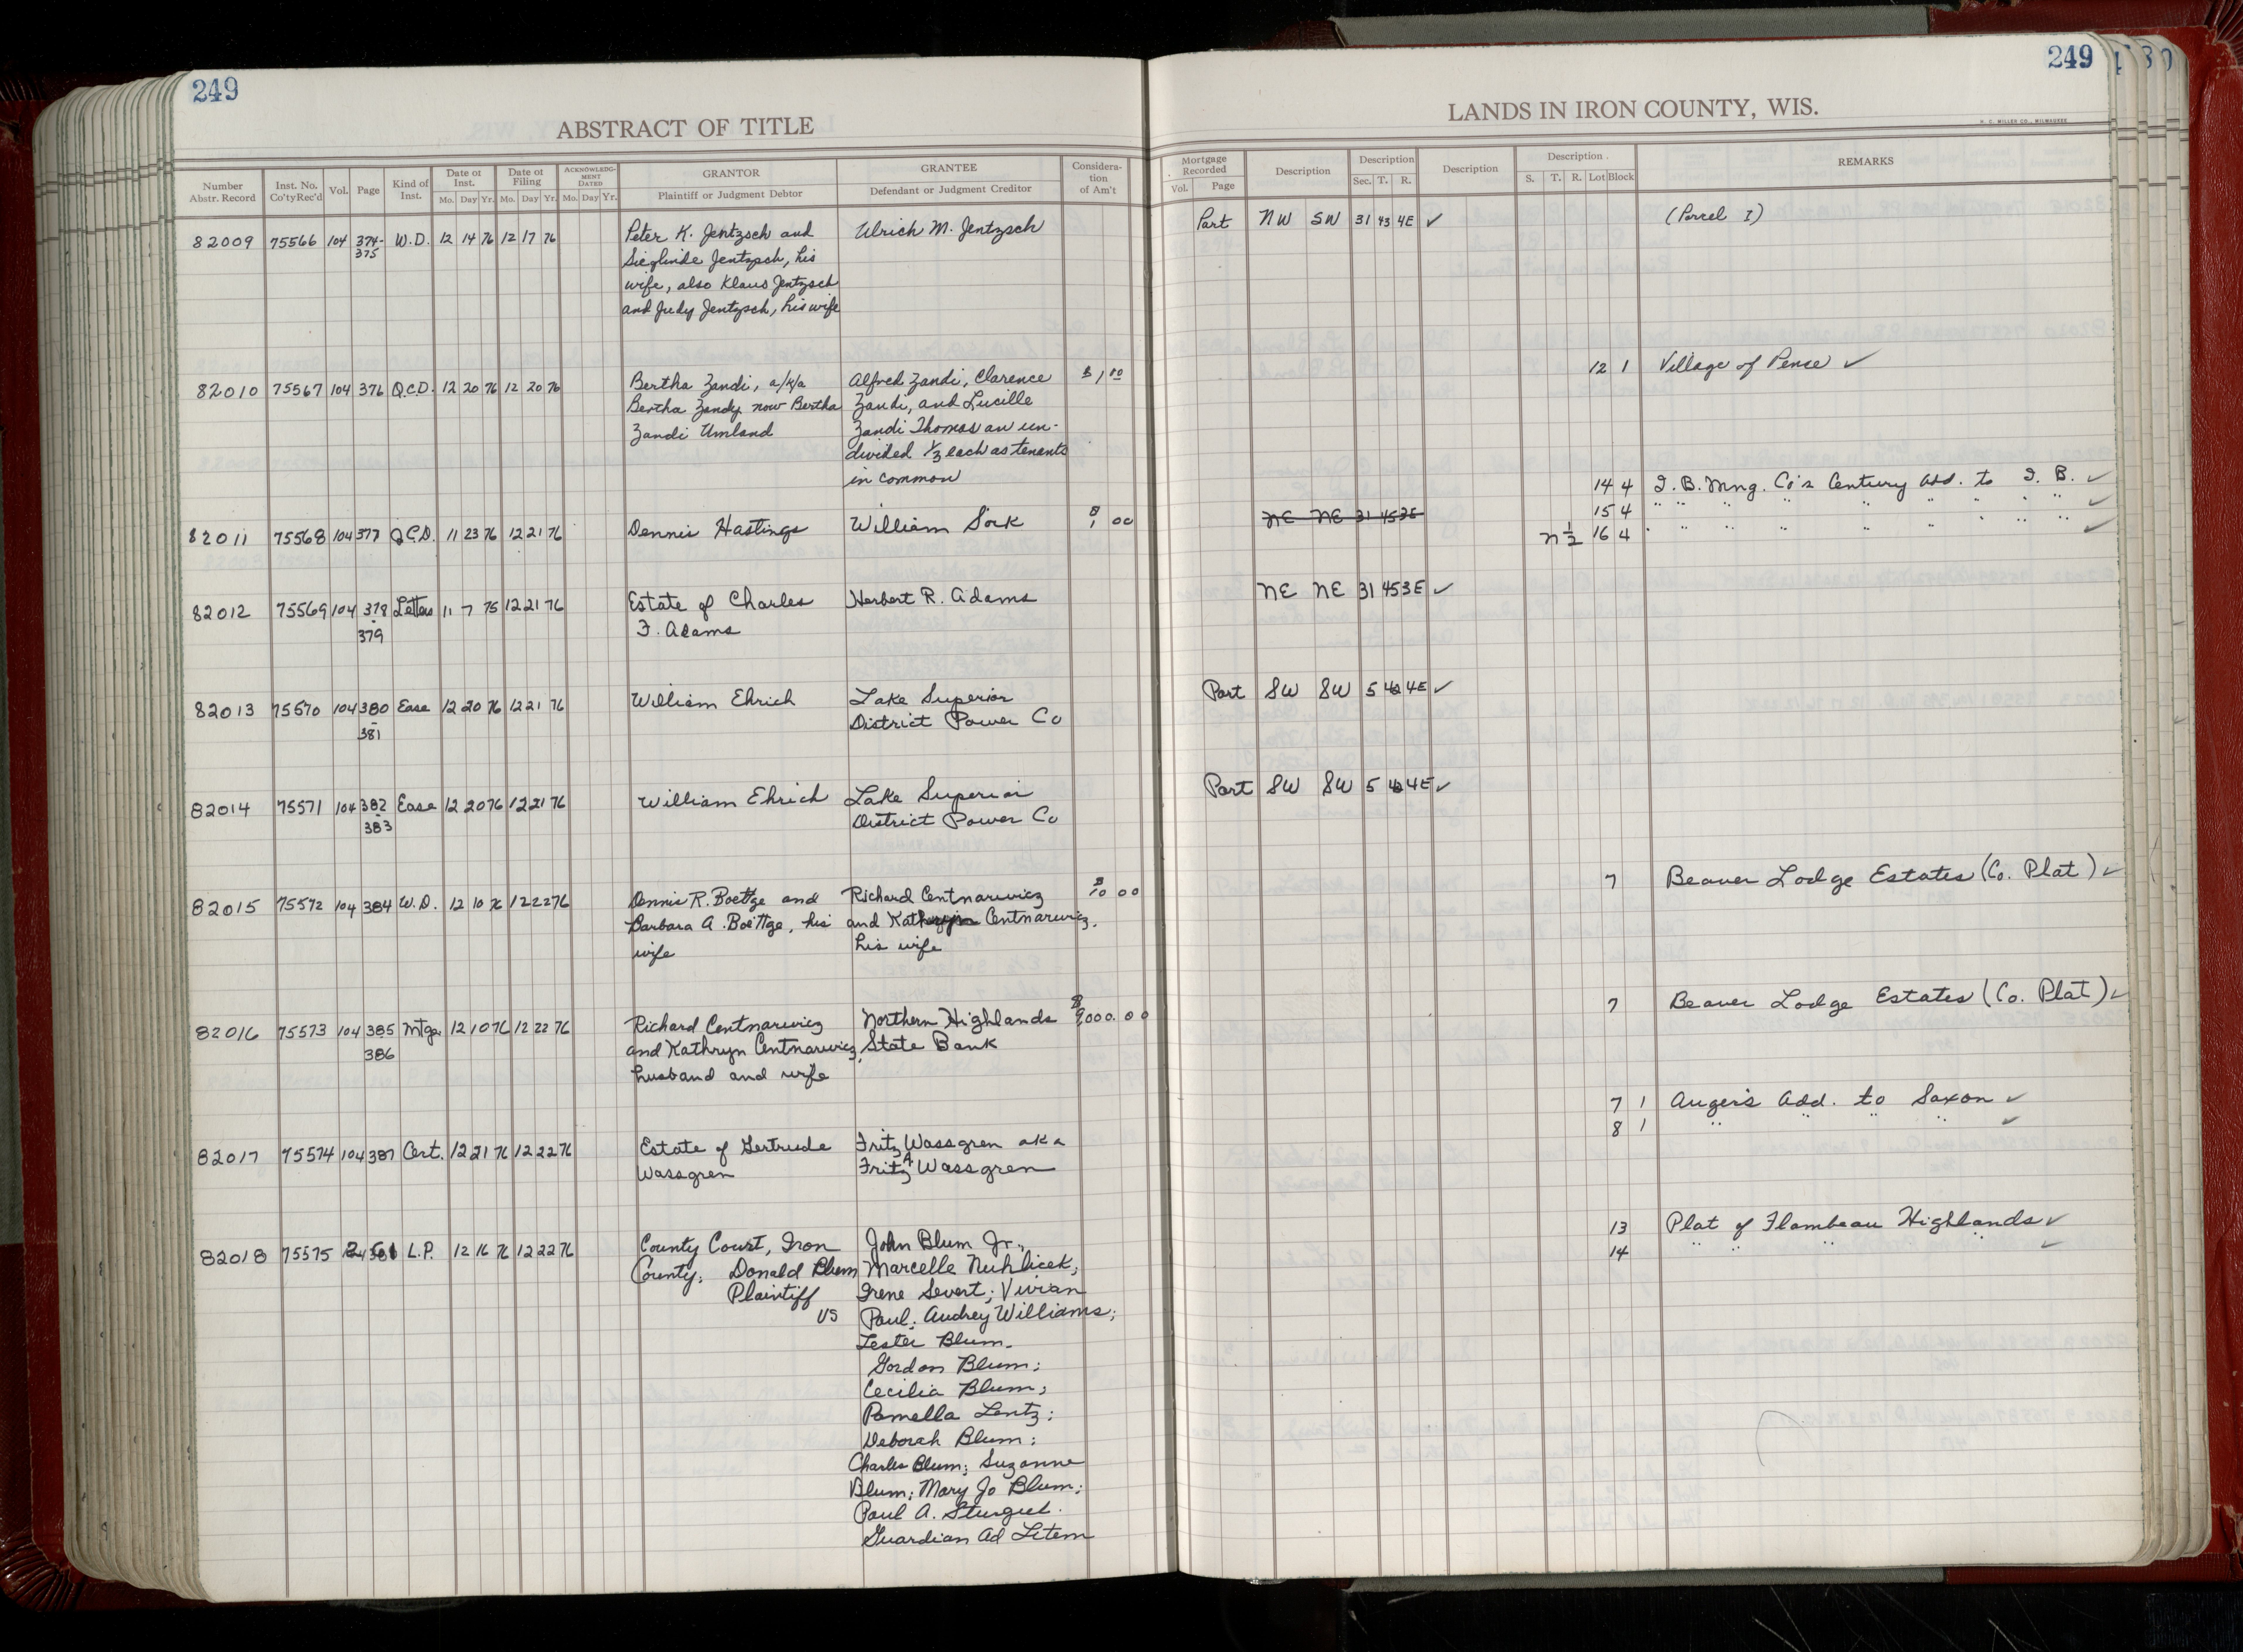 249
ABSTRACT OF TITLE
Number Abstr. Record Inst. No. Co'ty Rec'd Vol. Page Kind of Inst. Date of Inst. Mo. Day Yr. Date of Filing Mo. Day Yr. ACKNOWLEDGMENT DATED Mo. Day Yr. GRANTOR Plaintiff or Judgment Debtor GRANTEE Defendant or Judgment Creditor Consideration of Am't
82009 75566 104 374- W.D. 12 14 76 12 17 76 Peter K. Jentzsch and Ulrich M. Jentzsch
375 Sieglinde Jentzsch, his
wife, also Klaus Jentzsch
and Judy Jentzsch, his wife
82010 75567 104 376 Q.C.D. 12 20 76 12 20 76 Bertha Zandi, a/k/a Alfred Zandi, Clarence $1.00
Bertha Zandy now Bertha Zandi, and Lucille
Zandi Umland Zandi Thomas an un-
divided 1/3 each as tenants
in common
82011 75568 104 377 Q.C.D. 11 23 76 12 21 76 Dennis Hastings William Sork $1 00
82012 75569 104 378 Letters 11 7 75 12 21 76 Estate of Charles Herbert R. Adams
-
379 F. Adams
82013 75570 104 380 Ease 12 20 76 12 21 76 William Ehrich Lake Superior
-
381 District Power Co
82014 75571 104 382 Ease 12 20 76 12 21 76 William Ehrich Lake Superior
-
383 District Power Co
82015 75572 104 384 W.D. 12 10 76 12 22 76 Dennis R. Boettge and Richard Centnarwicz $10 00
Barbara A. Boettge, his and Kathryn Centnarwicz,
wife his wife
82016 75573 104 385 Mtge. 12 10 76 12 22 76 Richard Centnarwicz Northern Highlands $9,000.00
386 and Kathryn Centnarwicz, State Bank
husband and wife
82017 75574 104 387 Cert. 12 21 76 12 22 76 Estate of Gertrude Fritz Wassgren aka
Wassgren Fritz A Wassgren
82018 75575 L.P. 12 16 76 12 22 76 County Court, Iron John Blum Jr.,
County; Donald Blum Marcelle Nuhlicek;
Plaintiff Irene Severt; Vivian
vs Paul; Audrey Williams;
Lester Blum.
Gordon Blum;
Cecilia Blum;
Pamella Lentz;
Deborah Blum;
Charles Blum; Suzanne
Blum; Mary Jo Blum;
Paul A. Sturgul.
Guardian Ad Litem
249
LANDS IN IRON COUNTY, WIS.
H. C. MILLER CO., MILWAUKEE
Mortgage Recorded Vol. Page Description Description Sec. T. R. Description Description S. T. R. Lot Block REMARKS
Part NW SW 31 43 4E ✓ (Parcel I)
12 1 Village of Pence ✓
14 4 I.B. Mng. Co's Century Add. to I. B. ✓
NE NE 31 45 3E 15 4 " " " " " " " " ✓
N 1/2 16 4 " " " " " " " " ✓
NE NE 31 45 3E ✓
Part SW SW 5 42 4E ✓
Part SW SW 5 42 4E ✓
7 Beaver Lodge Estates (Co. Plat) ✓
7 Beaver Lodge Estates (Co. Plat) ✓
7 1 Auger's Add. to Saxon ✓
8 1 " " " " ✓
13 Plat of Flambeau Highlands ✓
14 " " " " ✓